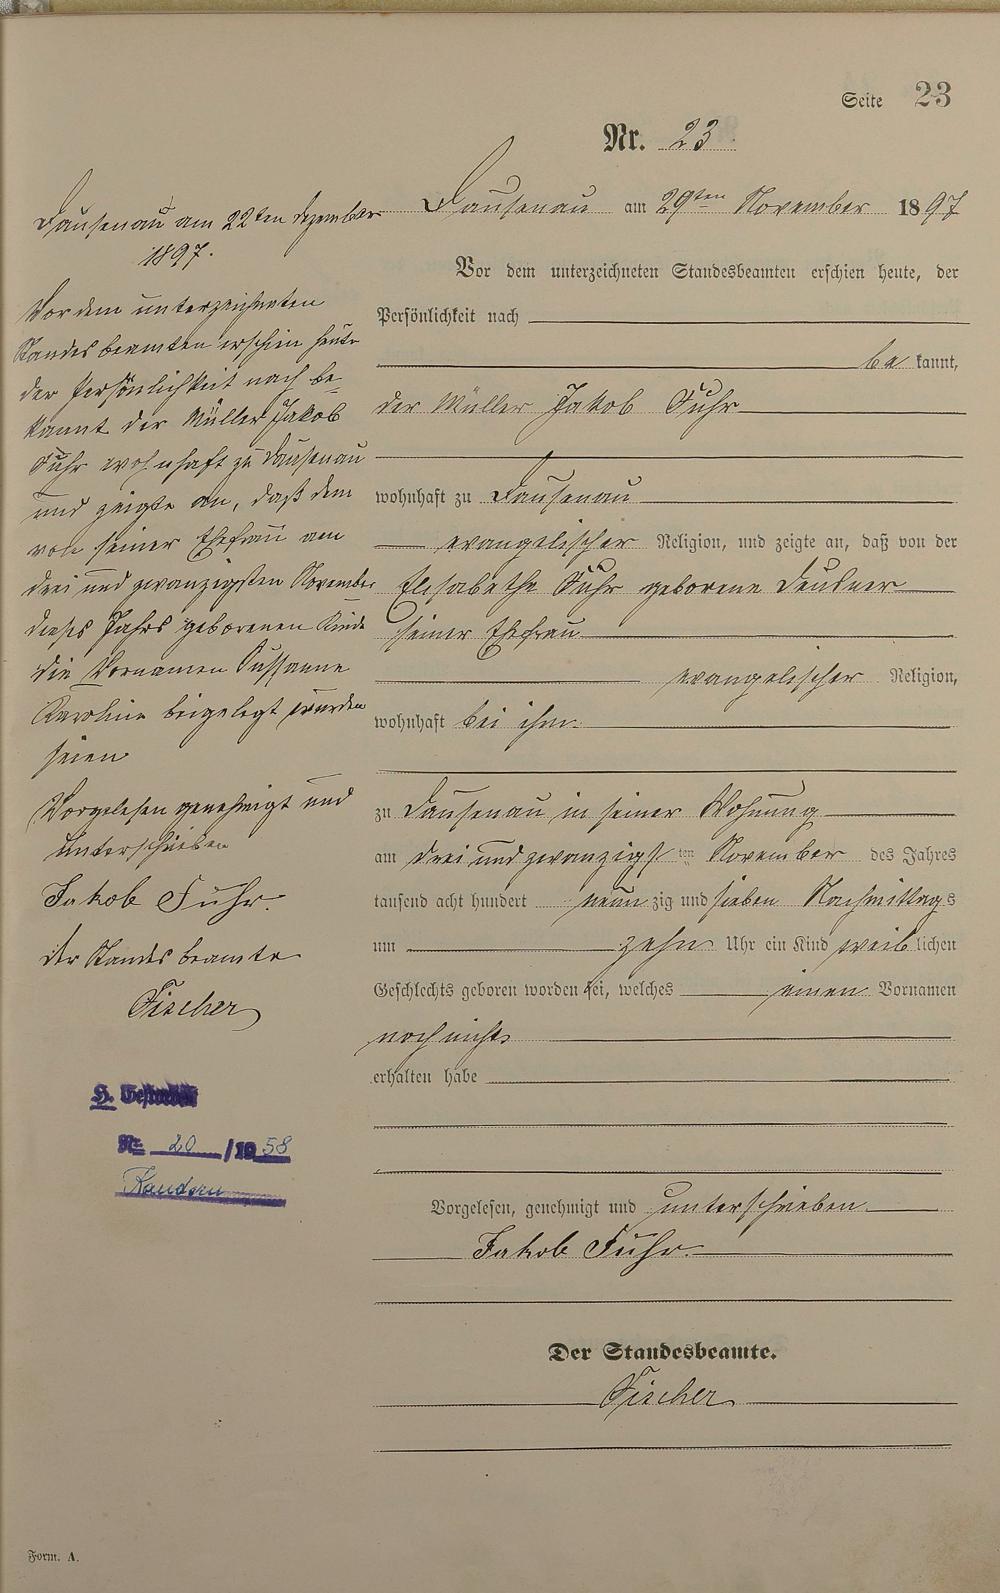 Seite 23
Nr. 23.
Dausenau am 29ten November 1897
Vor dem unterzeichneten Standesbeamten erschien heute, der
Persönlichkeit nach
be kannt,
der Müller Jakob Fuhr
wohnhaft zu Dausenau
evangelischer Religion, und zeigte an, daß von der
Elisabethe Fuhr geborene Deusner
seiner Ehefrau
evangelischer Religion,
wohnhaft bei ihm
zu Dausenau in seiner Wohnung
am drei und zwanzigsten November des Jahres
tausend acht hundert neun zig und sieben Nachmittags
um zehn Uhr ein Kind weiblichen
Geschlechts geboren worden sei, welches einen Vornamen
noch nicht
erhalten habe
Vorgelesen, genehmigt und unterschrieben
Jakob Fuhr
Der Standesbeamte.
Fischer
Dausenau am 22ten Dezember
1897.
Vor dem unterzeichneten
Standesbeamten erschien heute
der Persönlichkeit nach be=
kannt der Müller Jakob
Fuhr wohnhaft zu Dausenau
und zeigte an, daß dem
von seiner Ehefrau am
drei und zwanzigsten November
dieses Jahrs geborenen Kinde
die Vornamen Sussanne
Karoline beigelegt worden
seien
Vorgelesen genehmigt und
unterschrieben
Jakob Fuhr.
der Standesbeamte
Fischer
Nr. 20 /1958
Kandern
Form. A.